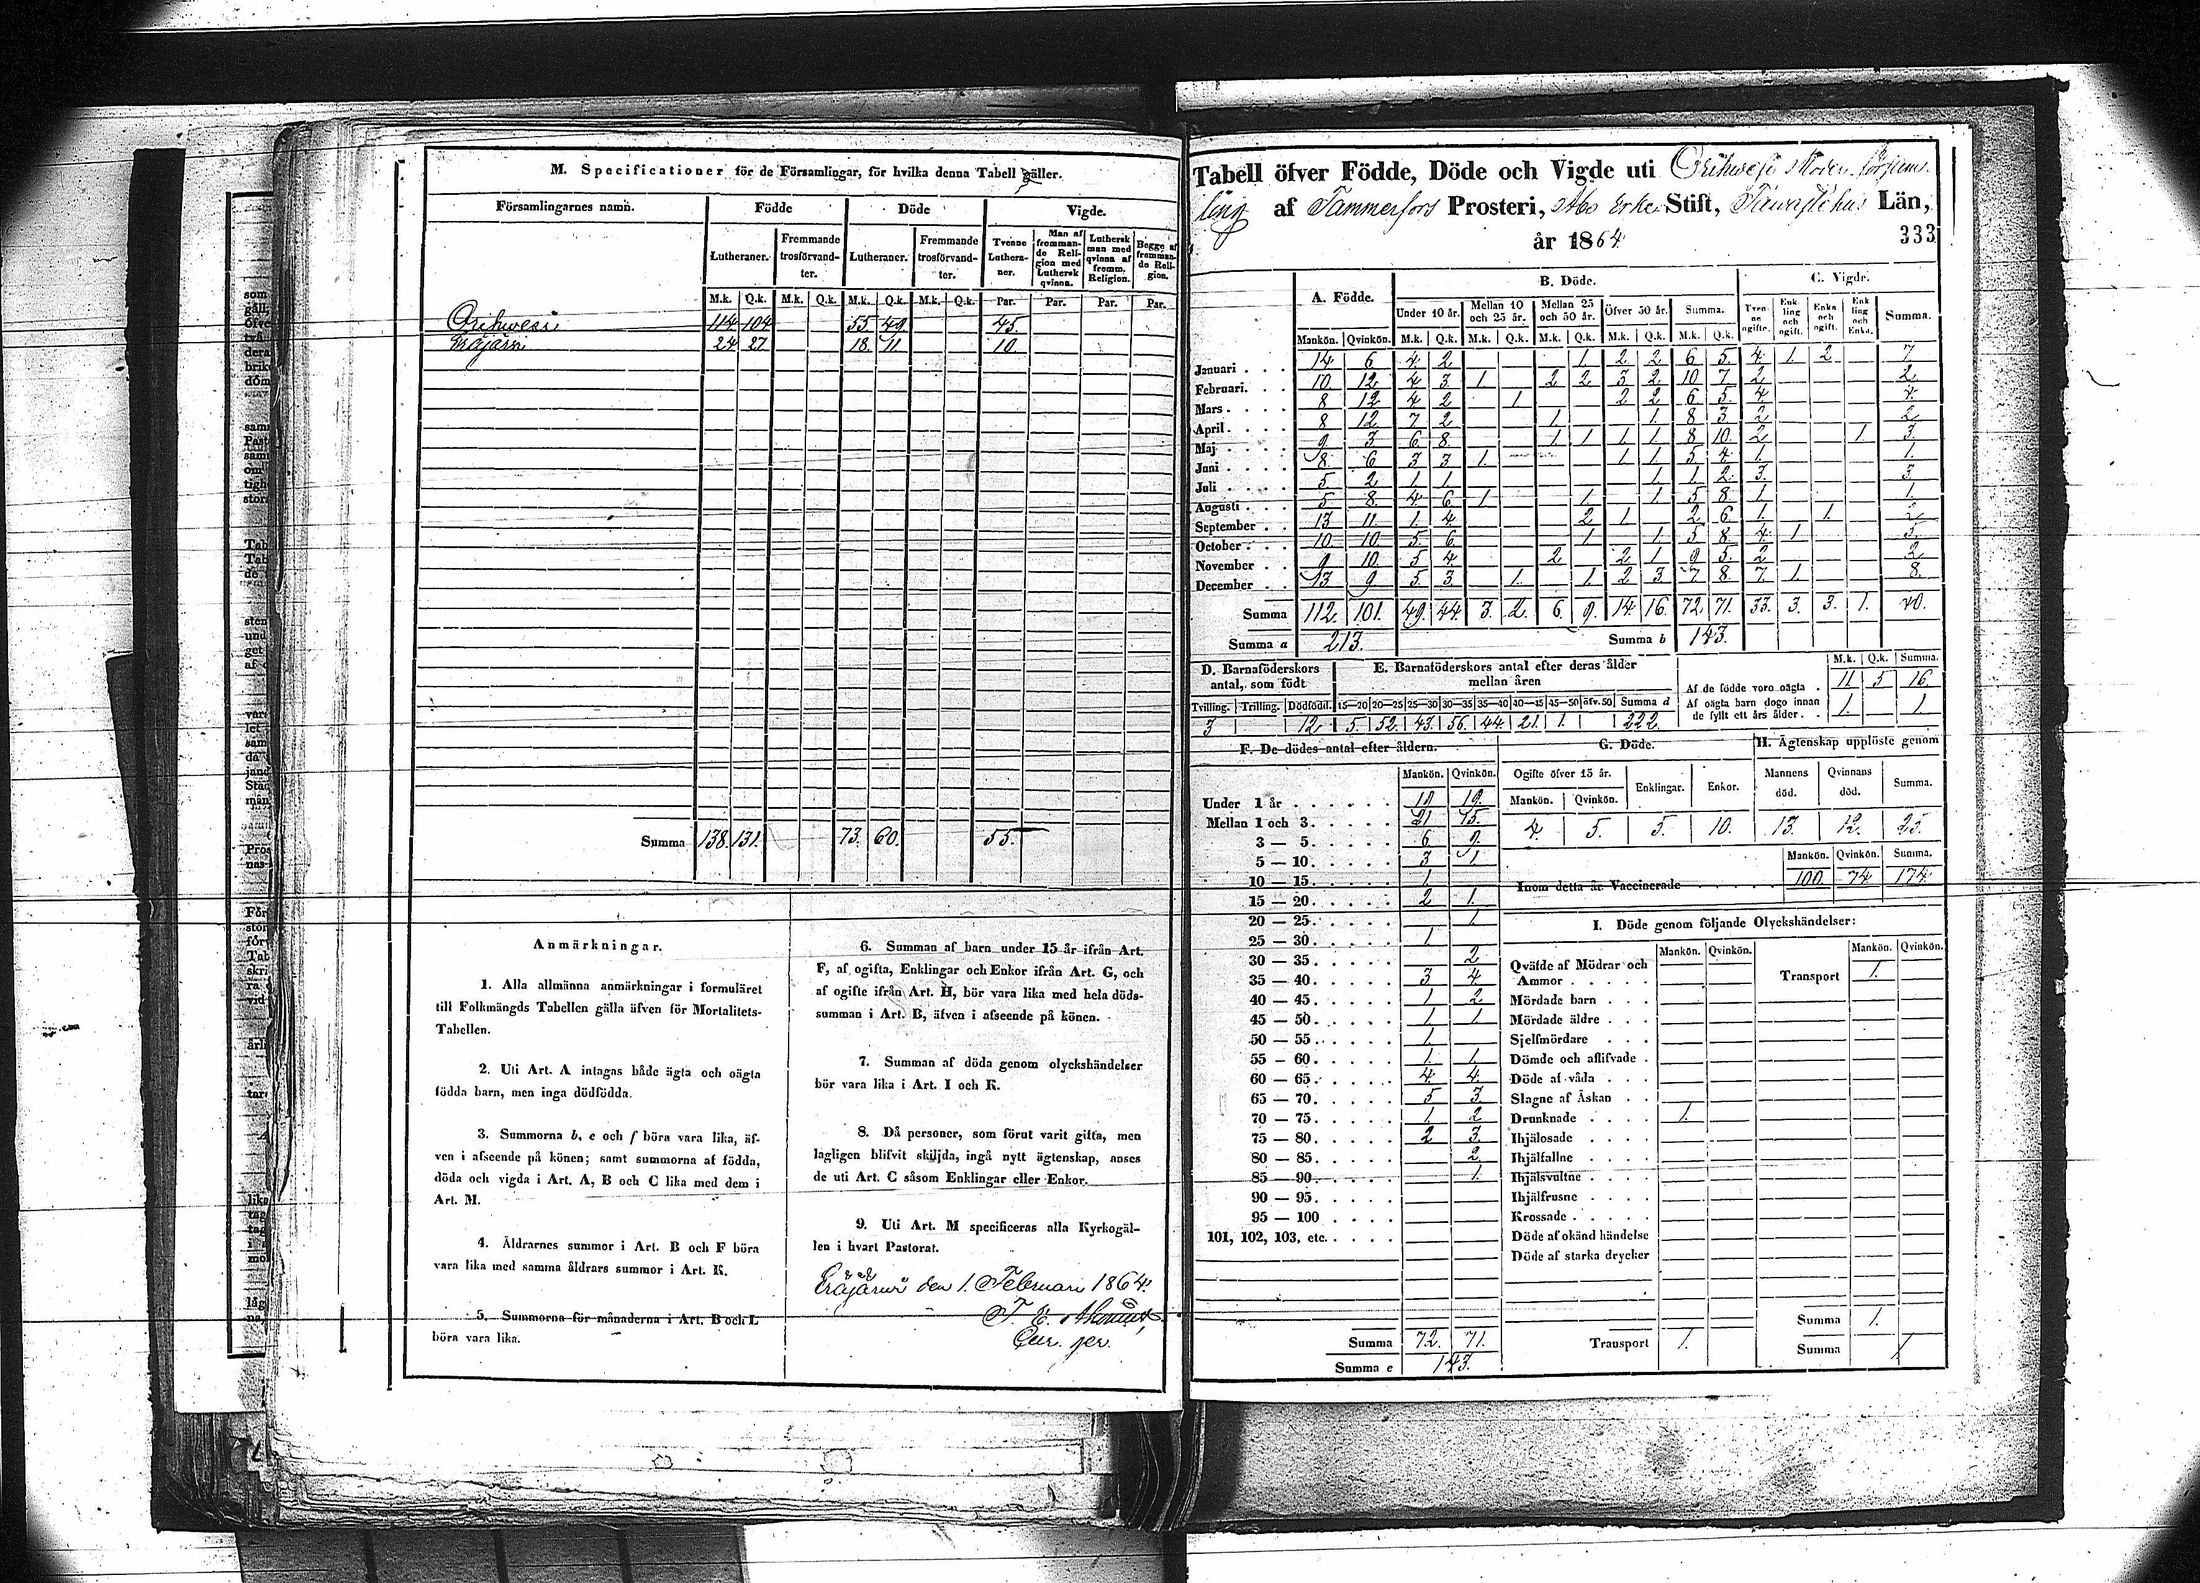 M. Specificationer för de Församlingar, för hvilka denna Tabell gäller.
Församlingarnes namn. Födde Döde Vigde.
Lutheraner. Fremmande trosförvandter. Lutheraner. Fremmande trosförvandter. Tvenne Lutheraner. Man af fremmande Religion med Luthersk qvinna. Luthersk man med qvinna af fremm. Religion. Begge af fremmande Religion.
M.k. Q.k. M.k. Q.k. M.k. Q.k. M.k. Q.k. Par. Par. Par. Par.
Orihwesi 114 104 55 49 45.
Eräjärvi 24 27 18. 11 10.
Summa 138. 131. 73. 60. 55.
Anmärkningar.
1. Alla allmänna anmärkningar i formuläret
till Folkmängds Tabellen gälla äfven för Mortalitets-
Tabellen.
2. Uti Art. A intagas både ägta och oägta
födda barn, men inga dödfödda.
3. Summorna b, e och f böra vara lika, äf-
ven i afseende på könen; samt summorna af födda,
döda och vigda i Art. A, B och C lika med dem i
Art. M.
4. Åldrarnes summor i Art. B och F böra
vara lika med samma åldrars summor i Art. K.
5. Summorna för månaderna i Art. B och L
böra vara lika.
6. Summan af barn under 15 år ifrån Art.
F, af ogifta, Enklingar och Enkor ifrån Art. G, och
af ogifte ifrån Art. H, bör vara lika med hela döds-
summan i Art. B, äfven i afseende på könen.
7. Summan af döda genom olyckshändelser
bör vara lika i Art. I och K.
8. Då personer, som förut varit gifta, men
lagligen blifvit skiljda, ingå nytt ägtenskap, anses
de uti Art. C såsom Enklingar eller Enkor.
9. Uti Art. M specificeras alla Kyrkogäl-
len i hvart Pastorat.
Eräjärvi den 1. Februari 1864.
Tabell öfver Födde, Döde och Vigde uti Orihwesi Moder församl
ling af Tammerfors Prosteri, Åbo Erke Stift, Tawastehus Län,
år 1864
333
A. Födde. B. Döde. C. Vigde.
Under 10 år. Mellan 10 och 25 år. Mellan 25 och 50 år. Öfver 50 år. Summa. Tvenne ogifte. Enkling och ogift. Enka och ogift. Enkling och Enka. Summa.
Mankön. Qvinkön. M.k. Q.k. M.k. Q.k. M.k. Q.k. M.k. Q.k. M.k. Q.k.
Januari 14 6 4 2 1 2 2 6 5 4 1 2 7
Februari 10 12 4 3 1 2 2 3 2 10 7 2 2
Mars 8 12 4 2 1 2 2 6 5 4 4
April 8 12 7 2 1 1 8 3 2 2
Maj 9 3 6 8 1 1 1 1 8 10 2 1 3
Juni 8 6 3 3 1 1 1 5 4 1 1
Juli 5 2 1 1 1 1 2 3 3
Augusti 5 8 4 6 1 1 1 5 8 1 1
September 13 11 1 4 2 1 2 6 1 1 2
October 10 10 5 6 1 1 5 8 4 1 5
November 9 10 5 4 2 2 1 9 5 2 2
December 13 9 5 3 1 1 2 3 7 8 7 1 8
Summa 112. 101. 49. 44. 3. 2. 6. 9. 14. 16. 72. 71. 33. 3. 3. 1. 40.
Summa a 213. Summa b 143.
D. Barnaföderskors antal, som födt
E. Barnaföderskors antal efter deras ålder mellan åren
Tvilling. Trilling. Dödfödd. 15—20 20—25 25—30 30—35 35—40 40—45 45—50 öfv. 50 Summa d
3 12. 5. 52. 43. 56. 44. 21. 1. 222.
M.k. Q.k. Summa.
Af de födde voro oägta 11 5 16
Af oägta barn dogo innan de fyllt ett års ålder 1. 1.
F. De dödes antal efter åldern.
Mankön. Qvinkön.
Under 1 år 19.
Mellan 1 och 3 21 15.
3 — 5 6 9.
5 — 10 3 1
10 — 15 1
15 — 20 2 1.
20 — 25 1.
25 — 30 1
30 — 35 2
35 — 40 3 4
40 — 45 1 2
45 — 50 1 1
50 — 55 1.
55 — 60 1. 1.
60 — 65 4. 4.
65 — 70 5 3
70 — 75 1 2
75 — 80 2 3.
80 — 85 2.
85 — 90 1.
90 — 95
95 — 100
101, 102, 103, etc.
Summa 72. 71.
Summa e 143.
G. Döde.
Ogifte öfver 15 år. Enklingar. Enkor.
Mankön. Qvinkön.
4. 5. 5. 10.
H. Ägtenskap upplöste genom
Mannens död. Qvinnans död. Summa.
13. 12. 25.
Mankön. Qvinkön. Summa.
Inom detta år Vaccinerade 100. 74 174
I. Döde genom följande Olyckshändelser:
Mankön. Qvinkön. Mankön. Qvinkön.
Qväfde af Mödrar och Ammor
Transport 1.
Mördade barn
Mördade äldre
Sjelfmördare
Dömde och aflifvade
Döde af våda
Slagne af Åskan
Drunknade 1.
Ihjälosade
Ihjälfallne
Ihjälsvultne
Ihjälfrusne
Krossade
Döde af okänd händelse
Döde af starka drycker
Summa 1.
Transport 1. Summa 1